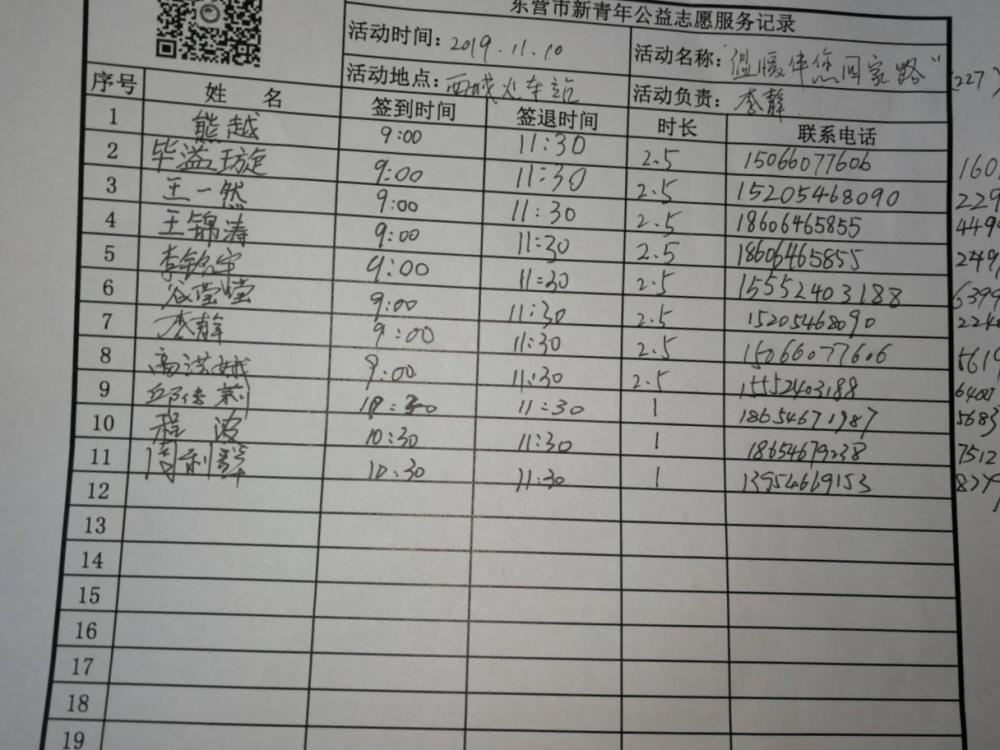 东营市新青年公益志愿服务记录
活动时间：2019.11.10 活动名称：“温暖伴您回家路”（227）
活动地点：西城火车站 活动负责：李静
序号 姓名 签到时间 签退时间 时长 联系电话
1 熊越 9:00 11:30 2.5 15066077606 160
2 毕溢璇 9:00 11:30 2.5 15205468090 229
3 王一然 9:00 11:30 2.5 18606465855 449
4 王锦涛 9:00 11:30 2.5 18606465855 249
5 李铭宇 9:00 11:30 2.5 15552403188 639
6 谷莹莹 9:00 11:30 2.5 15205468090 224
7 李静 9:00 11:30 2.5 15066077606 561
8 高洪娥 9:00 11:30 2.5 15552403188 640
9 10:30 11:30 1 18654671987 5683
10 程波 10:30 11:30 1 18654679238 7512
11 周利群 10:30 11:30 1 13954669153 827
12
13
14
15
16
17
18
19